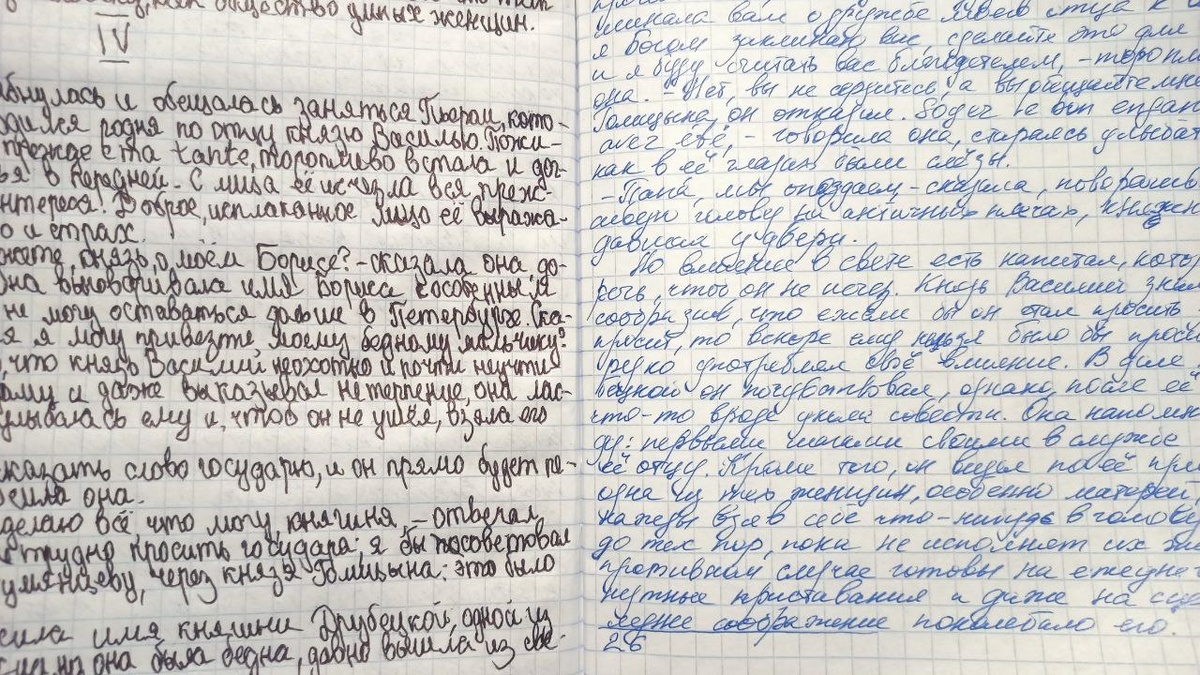 общество умных женщин.
IV
бнулась и обещалась заняться Пьером, кото-
дился родня по отцу князю Василью. Пожи-
прежде с ma tante, торопливо встала и дог-
ья в передней. С лица её исчезла вся преж-
нтереса. Доброе, исплаканное лицо её выража-
о и страх.
жете, князь, о моём Борисе? - сказала она, до-
Она выговаривала имя Бориса с особенным
не могу оставаться дальше в Петербурге. Ска-
я я могу привезти моему бедному мальчику?
, что князь Василий неохотно и почти неучти-
аму и даже выказывал нетерпение, она лас-
улыбалась ему и, чтоб он не ушёл, взяла его
сказать слово государю, и он прямо будет пе-
сила она.
делаю всё, что могу, княгиня, - отвечал
трудно просить государя; я бы посоветовал
умянцеву, через князя Голицына: это было
сила имя княгини Друбецкой, одной из
она была бедна, давно вышла из све-
минала вам о дружбе моего отца к
я Богом заклинаю вас, сделайте это для
и я буду считать вас благодетелем, - торопли
она. - Нет, вы не сердитесь, а вы обещайте мне
Голицына, он отказал. Soyez le bon enfant
avez été, - говорила она, стараясь улыбат
как в её глазах были слёзы.
- Папа, мы опоздаем, - сказала, повернув
голову на античных плечах, княжн
у двери.
Но влияние в свете есть капитал, котор
чтоб он не исчез. Князь Василий знал
сообразив, что ежели бы он стал просить
просит, то вскоре ему нельзя было бы проси
редко употреблял своё влияние. В деле
бецкой он почувствовал, однако, после её
что-то вроде укола совести. Она напомн
ду: первыми шагами своими в службе
её отцу. Кроме того, он видел по её при
одна из тех женщин, особенно матерей
взяв себе что-нибудь в голову
до тех пор, пока не исполнят их
противном случае готовы на ежедне
нутные приставания и даже на сц
леднее соображение поколебало его.
26